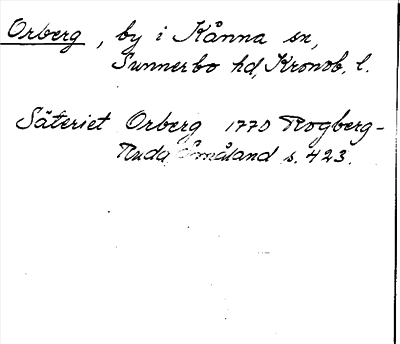 Orberg, by i Kånna sn,
Sunnerbo hd, Kronob. l.
Säteriet Orberg 1770 Rogberg-
Ruda, Småland s. 423.